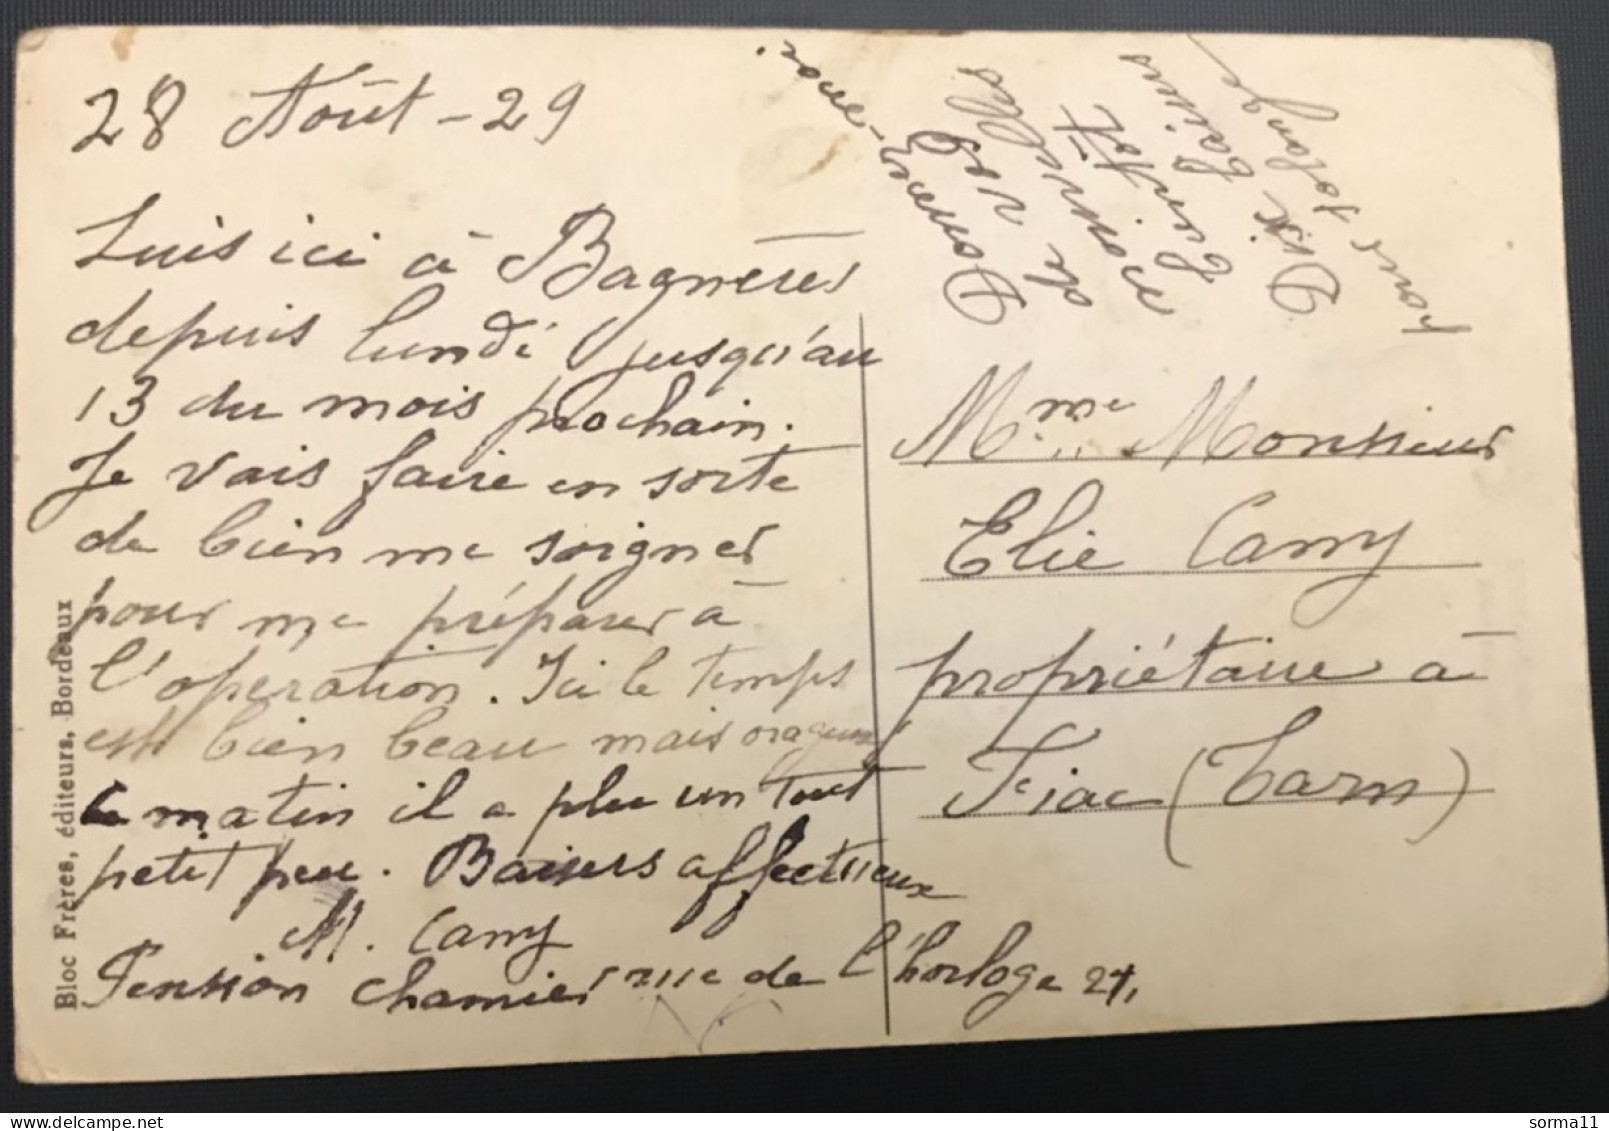 28 Août - 29
Suis ici à Bagneres
depuis lundi jusqu'au
13 du mois prochain.
Je vais faire en sorte
de bien me soigner
pour me préparer à
l'operation. Ici le temps
est bien beau mais orageux
ce matin il a plu un tout
petit peu. Baisers affectueux
M. Cany
Pension Chamier rue de l'horloge 21,
Donnez-moi
de vos
nouvelles
bientôt
Dix baisers
pour Solange
Mme Monsieur
Elie Cany
propriétaire à
Fiac (Tarn)
Bloc Frères, éditeurs, Bordeaux
sorma11